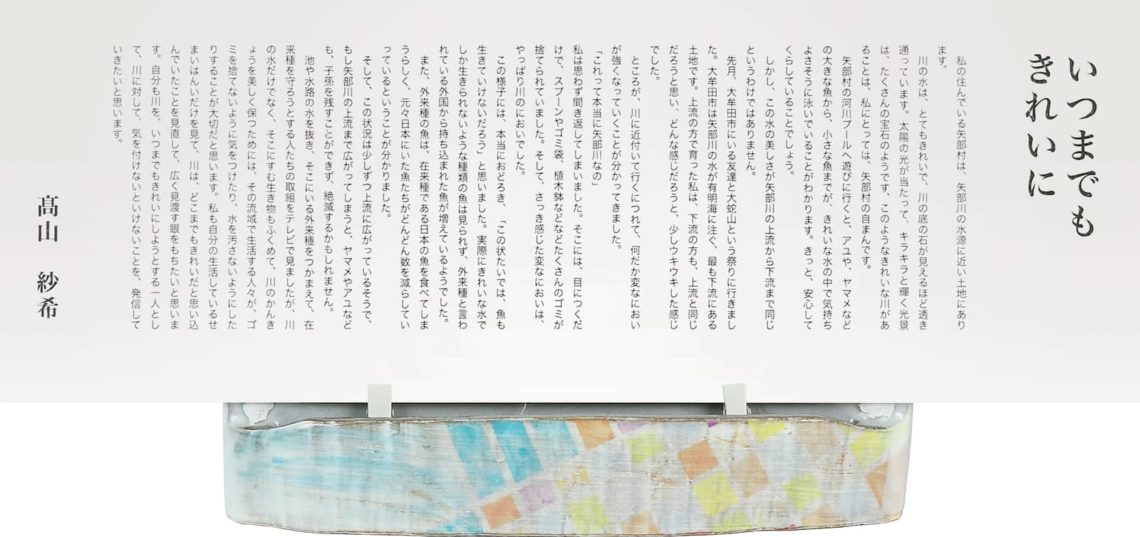 いつまでも
きれいに
髙山　紗希
　私の住んでいる矢部村は、矢部川の水源に近い土地にあり
ます。
　川の水は、とてもきれいで、川の底の石が見えるほど透き
通っています。太陽の光が当たって、キラキラと輝く光景
は、たくさんの宝石のようです。このようなきれいな川があ
ることは、私にとっては、矢部村の自まんです。
　矢部村の河川プールへ遊びに行くと、アユや、ヤマメなど
の大きな魚から、小さな魚までが、きれいな水の中で気持ち
よさそうに泳いでいることがわかります。きっと、安心して
くらしていることでしょう。
　しかし、この水の美しさが矢部川の上流から下流まで同じ
というわけではありません。
　先月、大牟田市にいる友達と大蛇山という祭りに行きまし
た。大牟田市は矢部川の水が有明海に注ぐ、最も下流にある
土地です。上流の方で育った私は、下流の方も、上流と同じ
だろうと思い、どんな感じだろうと、少しウキウキした感じ
でした。
　ところが、川に近付いて行くにつれて、何だか変なにおい
が強くなっていくことが分かってきました。
「これって本当に矢部川なの」
私は思わず聞き返してしまいました。そこには、目につくだ
けで、スプーンやゴミ袋、植木鉢などなどたくさんのゴミが
捨てられていました。そして、さっき感じた変なにおいは、
やっぱり川のにおいでした。
　この様子には、本当におどろき、「この状たいでは、魚も
生きていけないだろう」と思いました。実際にきれいな水で
しか生きられないような種類の魚は見られず、外来種と言わ
れている外国から持ち込まれた魚が増えているようでした。
　また、外来種の魚は、在来種である日本の魚を食べてしま
うらしく、元々日本にいた魚たちがどんどん数を減らしてい
っているということが分かりました。
　そして、この状況は少しずつ上流に広がっているそうで、
もし矢部川の上流まで広がってしまうと、ヤマメやアユなど
も、子孫を残すことができず、絶滅するかもしれません。
　池や水路の水を抜き、そこにいる外来種をつかまえて、在
来種を守ろうとする人たちの取組をテレビで見ましたが、川
の水だけでなく、そこにすむ生き物もふくめて、川のかんき
ょうを美しく保つためには、その流域で生活する人々が、ゴ
ミを捨てないように気をつけたり、水を汚さないようにした
りすることが大切だと思います。私も自分の生活しているせ
まいはんいだけを見て、川は、どこまでもきれいだと思い込
んでいたことを見直して、広く見渡す眼をもちたいと思いま
す。自分も川を、いつまでもきれいにしようとする一人とし
て、川に対して、気を付けないといけないことを、発信して
いきたいと思います。